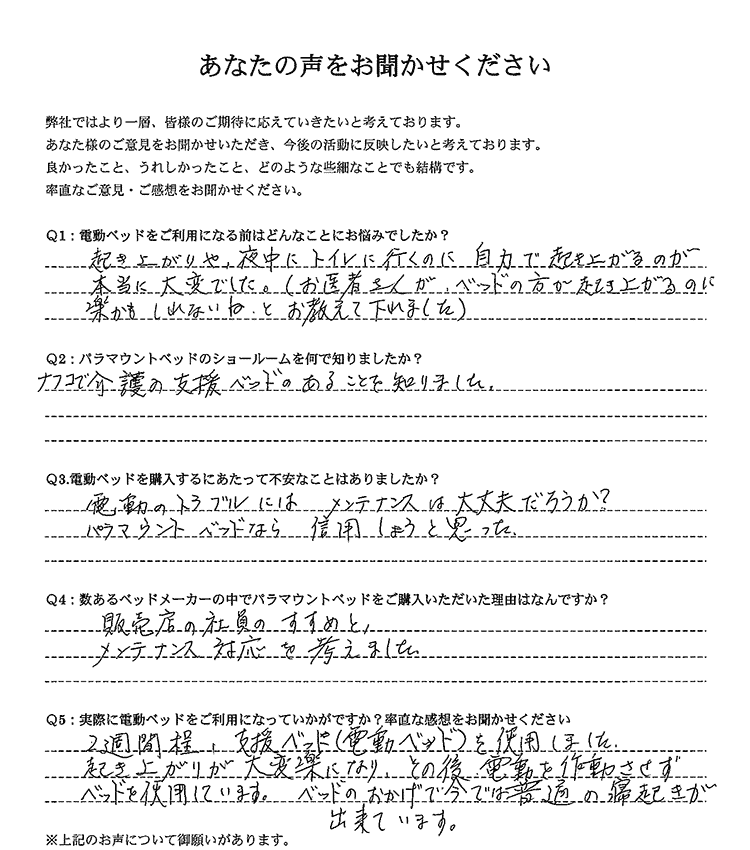 あなたの声をお聞かせください
弊社ではより一層、皆様のご期待に応えていきたいと考えております。
あなた様のご意見をお聞かせいただき、今後の活動に反映したいと考えております。
良かったこと、うれしかったこと、どのような些細なことでも結構です。
率直なご意見・ご感想をお聞かせください。
Q1：電動ベッドをご利用になる前はどんなことにお悩みでしたか？
起き上がりや,夜中にトイレに行くのに 自力で起き上がるのが
本当に大変でした。(お医者さんが、ベッドの方が起き上がるのに
楽かもしれないね、とお教えて下れました)
Q2：パラマウントベッドのショールームを何で知りましたか？
ナフコで介護の支援ベッドのあることを知りました。
Q3.電動ベッドを購入するにあたって不安なことはありましたか？
電動のトラブルには メンテナンスは大丈夫だろうか?
パラマウントベッドなら 信用しようと思った。
Q4：数あるベッドメーカーの中でパラマウントベッドをご購入いただいた理由はなんですか？
販売店の社員のすすめと,
メンテナンス対応を考えました。
Q5：実際に電動ベッドをご利用になっていかがですか？率直な感想をお聞かせください
2,3週間程、支援ベッド(電動ベッド)を使用しました。
起き上がりが大変楽になり、その後電動を作動させず
ベッドを使用しています。 ベッドのおかげで今では普通の寝起きが
出来ています。
※上記のお声について御願いがあります。